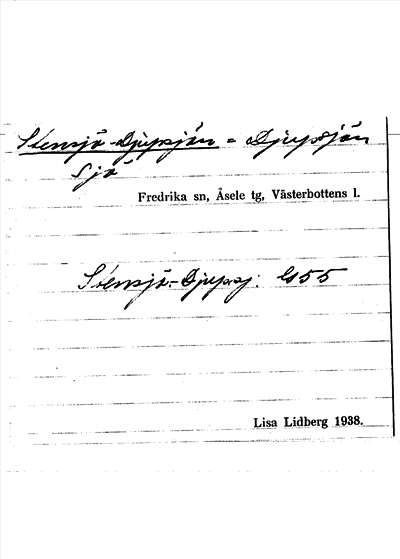 Stensjö-Djupsjön = Djupsjön
Sjö
Fredrika sn, Åsele tg, Västerbottens l.
Stensjö-Djupsj: G55
Lisa Lidberg 1938.